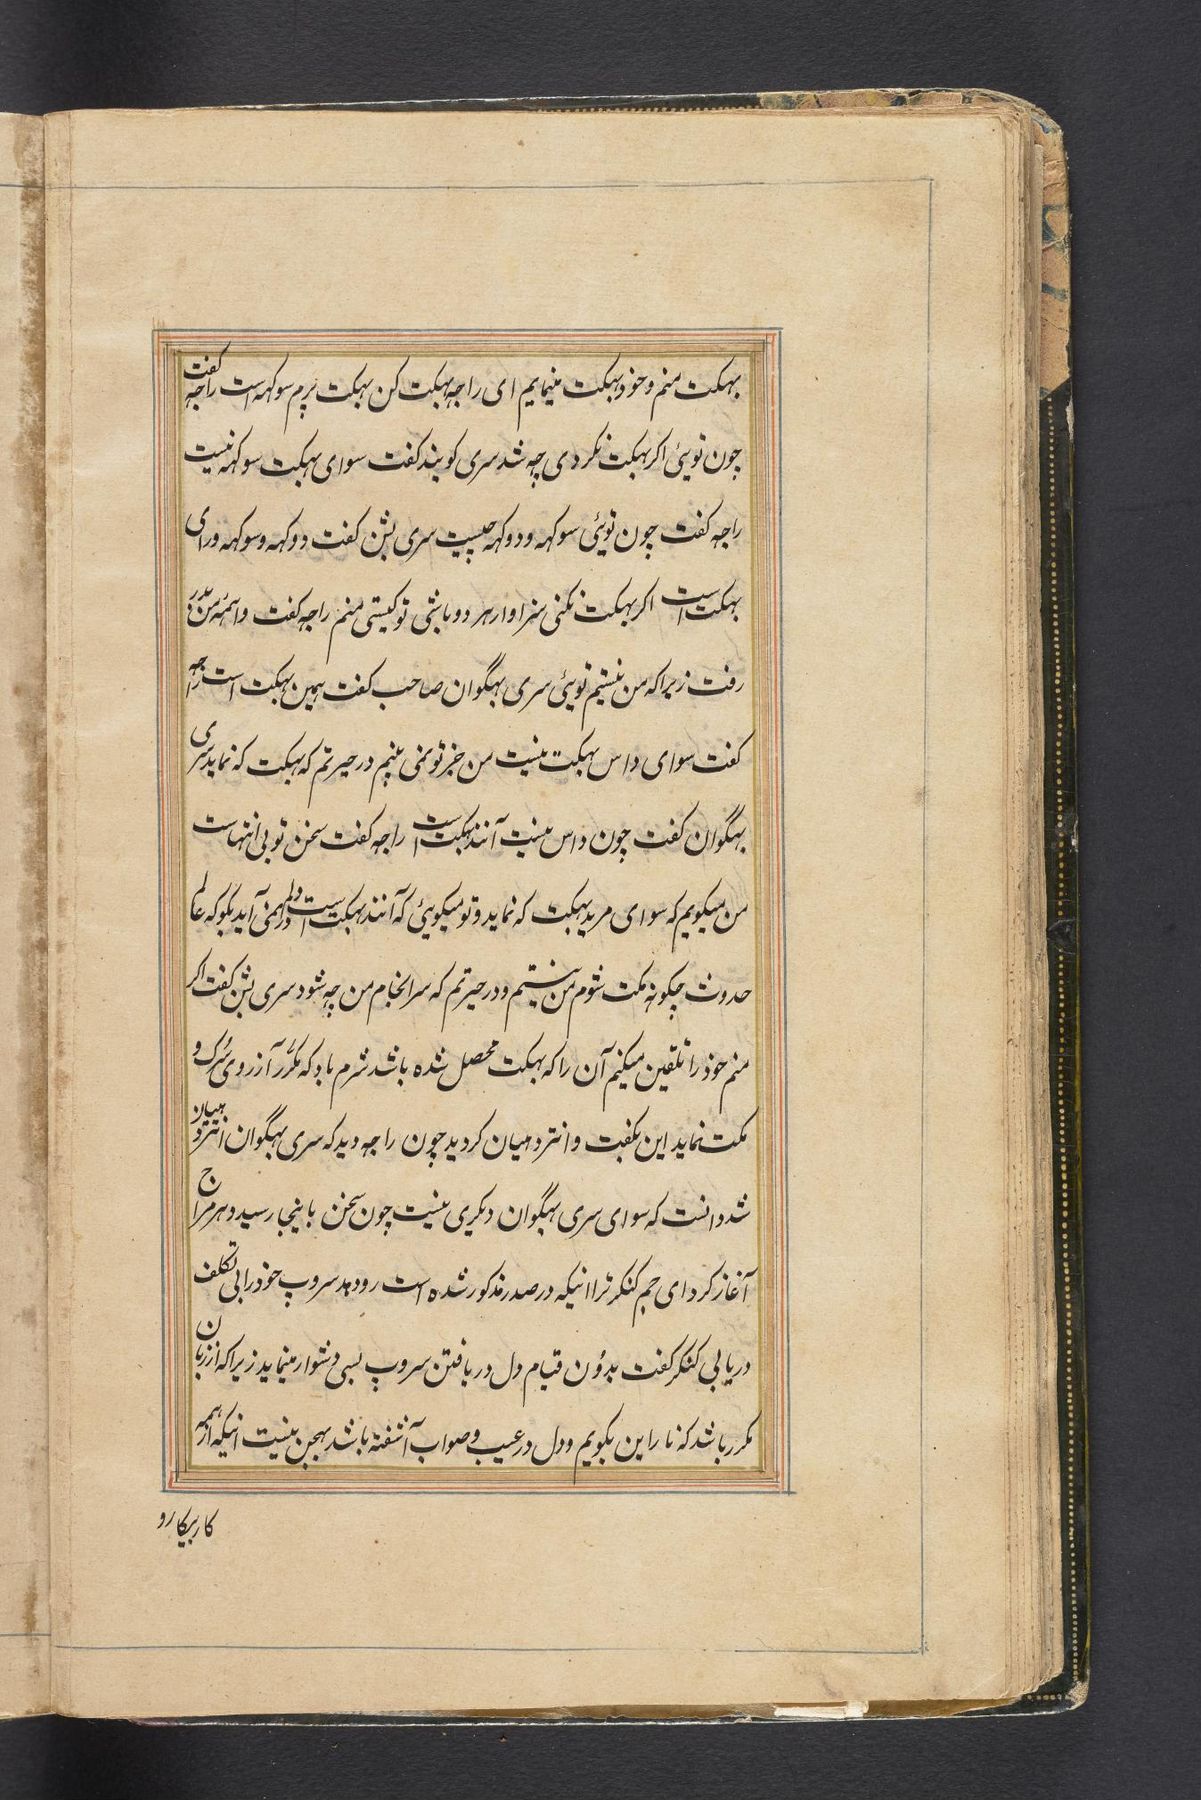 بهکت منم و خود بهکت مینمایم ای راجه بهکت کن بهکت پرم سوکهه است راجه گفت
چون توئی اگر بهکت نکردی چه شد سری گویند گفت سوای بهکت سوکهه نیست
راجه گفت چون توئی سوکهه و دوکهه چیست سری بشن گفت دوکهه و سوکهه ورای
بهکت است اگر بهکت نکنی سزاوار هر دو باشی تو کیستی منم راجه گفت واهمه من بدر
رفت زیرا که من نیستم توئی سری بهگوان صاحب گفت همین بهکت است راجه
گفت سوای داس بهکت نیست من جز تو نمی بینم در حیرتم که بهکت که نماید سری
بهگوان گفت چون داس نیست آنند بهکت است راجه گفت سخن تو بی انتهاست
من میگویم که سوای مرید بهکت که نماید و تو میگوئی که آنند بهکت است در فهم نمی آید بگو که عالم
حدوث چگونه مکت شوم من نیستم و در حیرتم که سرانجام من چه شود سری بشن گفت اگر
منم خود را تلقین میکنم آن را که بهکت محصل شده باشد شرم باد که مکرر آرزوی سرک و
مکت نماید این بگفت و انتردهیان گردید چون راجه دید که سری بهگوان انتردهیان
شد دانست که سوای سری بهگوان دیگری نیست چون سخن باینجا رسید دهرمراج
آغاز کرد ای جم کنکر ترا اینکه در صدر مذکور شده است رو دهد سروپ خود را بی تکلف
دریابی کنکر گفت بدون قیام دل دریافتن سروپ بسی دشوار مینماید زیرا که از زبان
مکرر باشد که ناراین بگویم و دل در عیب و صواب آشفته باشد بهجن نیست اینکه از همه
کار بیکار و